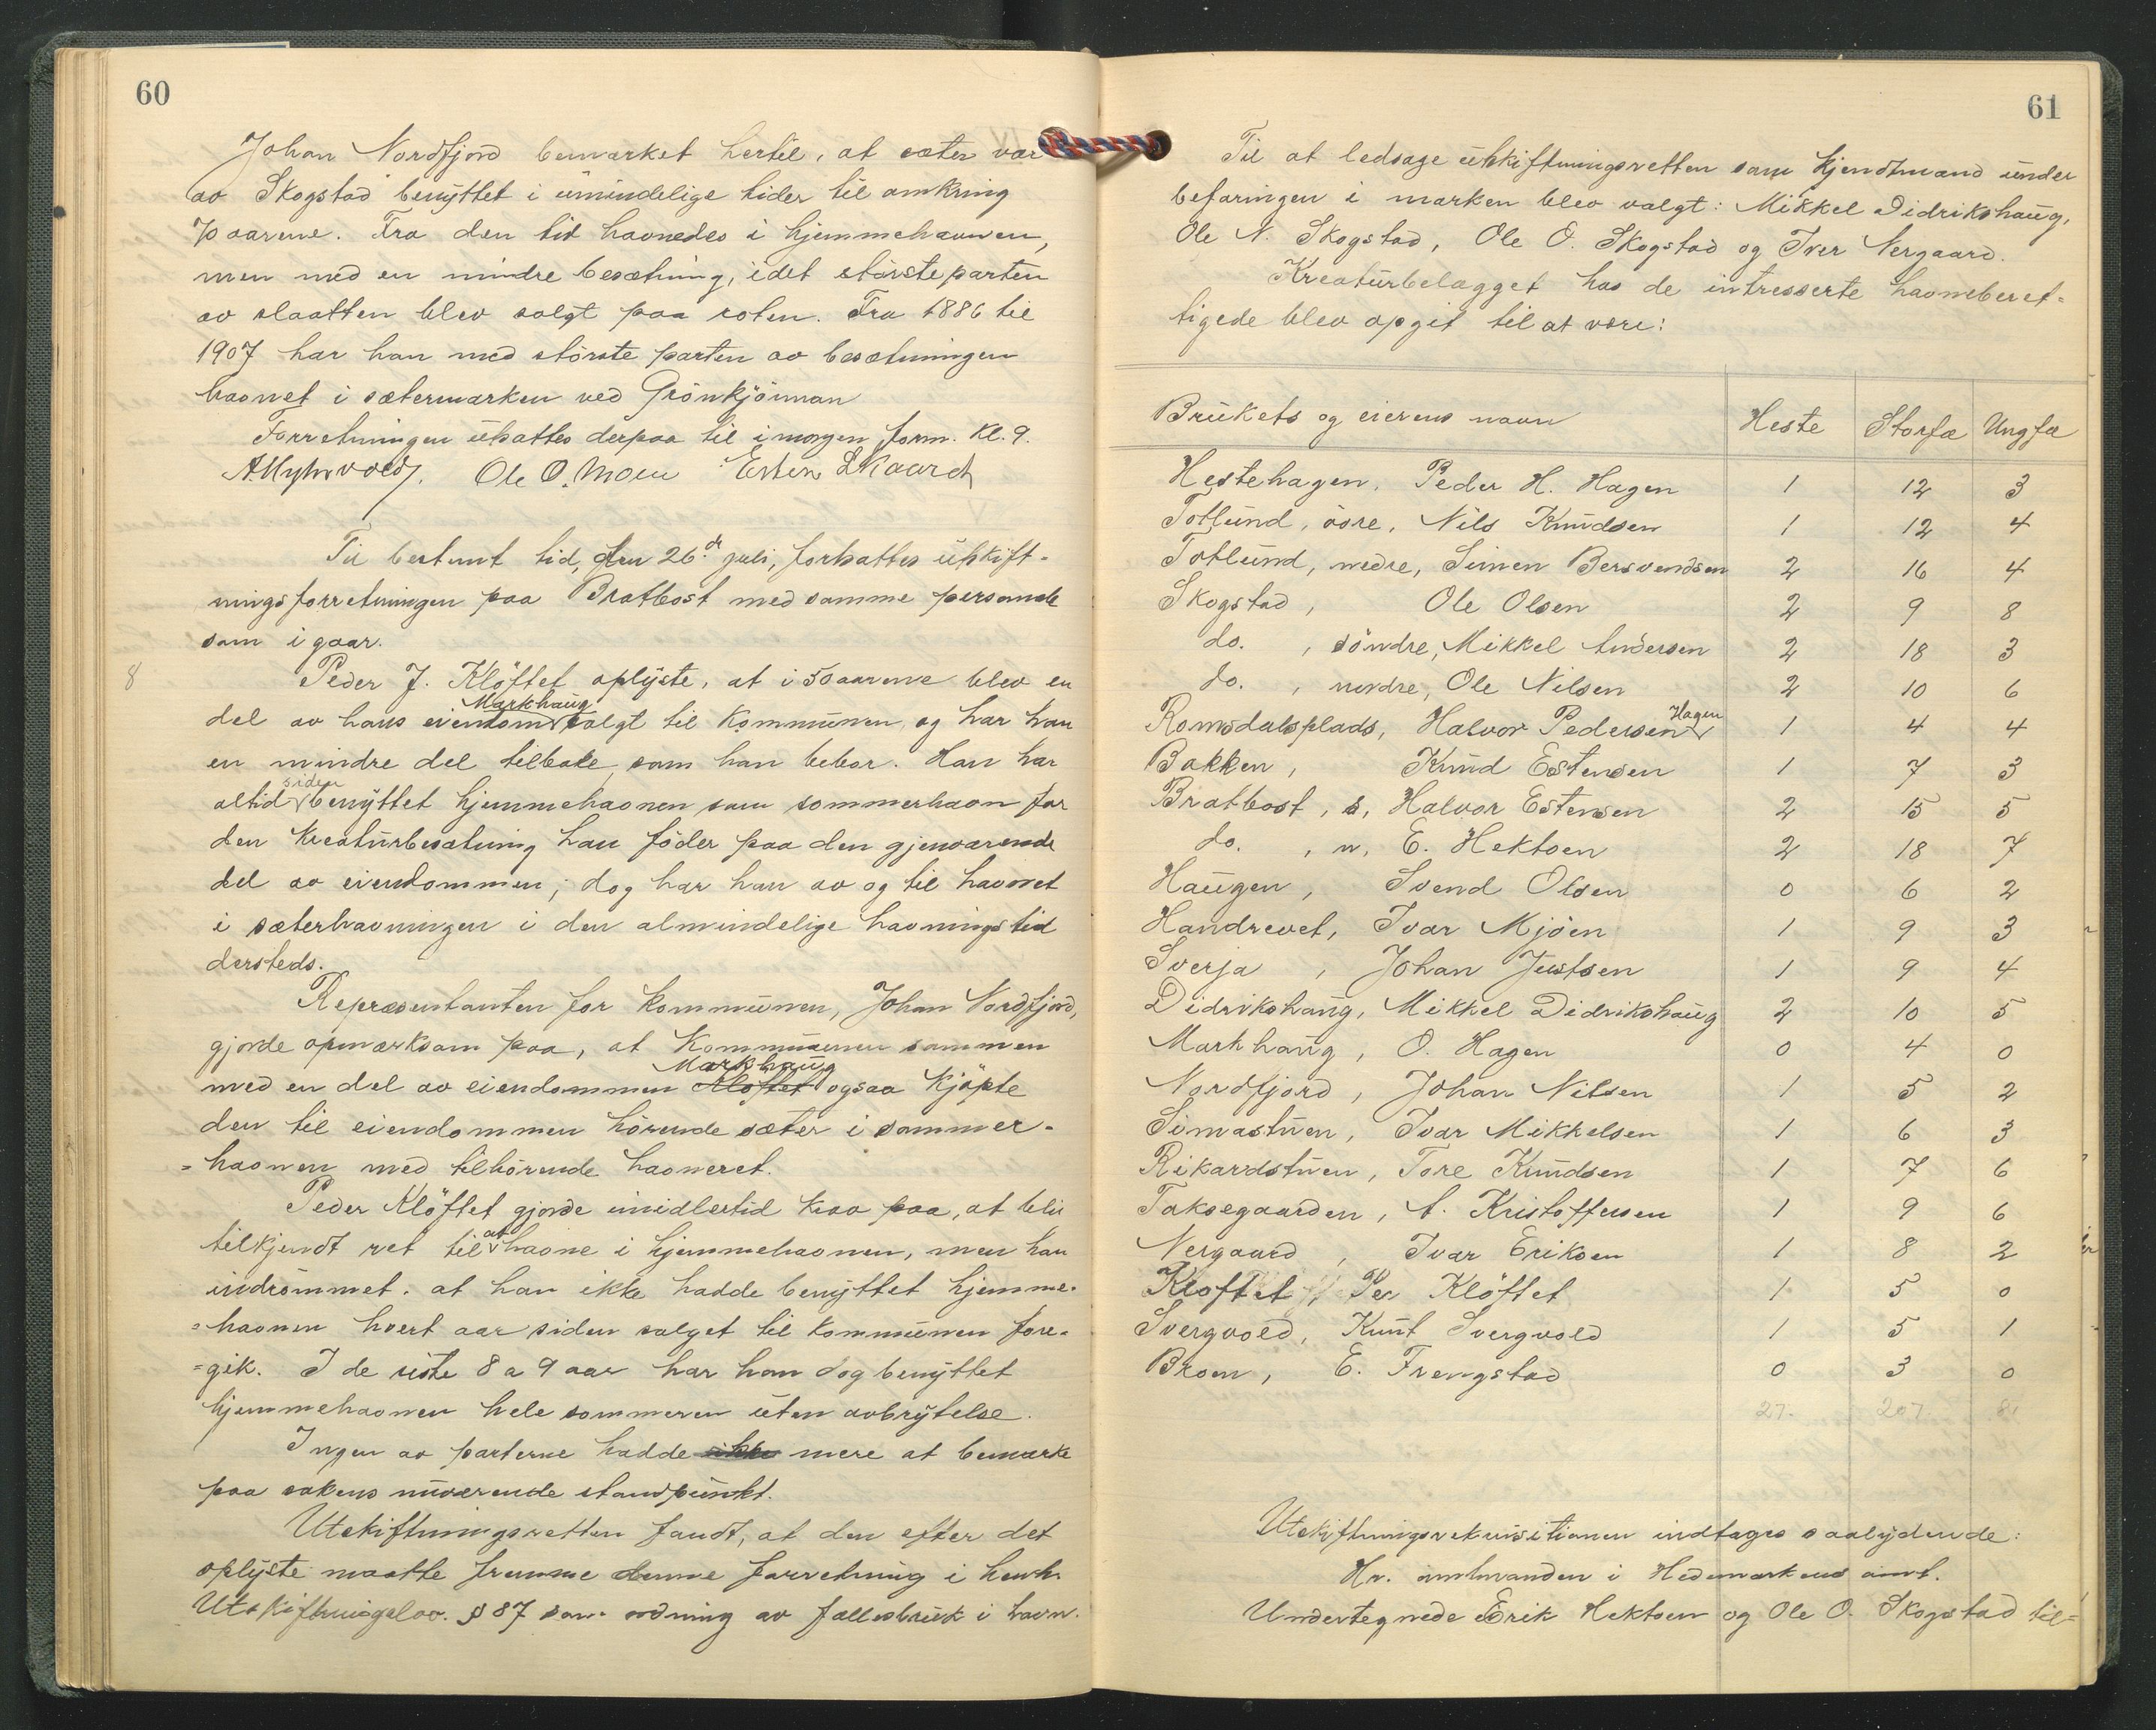 60
Johan Nordfjord bemærket hertil, at sæter var
av Skogstad benyttet i umindelige tider til omkring
70 aarene. Fra den tid havnedes i hjemmehavnen,
men med en mindre besætning, idet størsteparten
av slaatten blev solgt paa roten. Fra 1886 til
1907 har han med største parten av besætningen
havnet i sætermarken ved Grönkjönnan
Forretningen utsattes derpaa til imorgen form. Kl. 9.
A. Myhrvold. Ole O. Moen Esten Skaard
Til bestemt tid, den 26.de juli, fortsattes utskift-
ningsforretningen paa Bratbost med samme personale
som igaar.
8
Peder J. Klöftet oplyste, at i 50 aarene blev en
del av hans eiendom Markhaug solgt til Kommunen, og har han
en mindre del tilbake, som han bebor. Han har
altid siden benyttet hjemmehavnen som sommerhavn for
den kreaturbesætning han föder paa den gjenværende
del av eiendommen; dog har han av og til havnet
i sæterhavningen i den almindelige havningstid
dersteds.
Repræsentanten for kommunen, Johan Nordfjord,
gjorde opmærksom paa, at Kommunen sammen
med en del av eiendommen Klöftet Markhaug ogsaa kjöpte
den til eiendommen hörende sæter i sommer-
=havnen med tilhörende havneret.
Peder Klöftet gjorde imidlertid krav paa, at bli
tilkjendt ret til at havne i hjemmehavnen, men han
indrömmet, at han ikke hadde benyttet hjemme-
=havnen hvert aar siden salget til kommunen fore-
=gik. I de siste 8 a 9 aar har han dog benyttet
hjemmehavnen hele sommeren uten avbrytelse.
Ingen av parterne hadde ikke mere at bemærke
paa sakens nuværende standpunkt.
Utskiftningsretten fandt, at den efter det
oplyste maatte fremme denne forretning i henh.
Utskiftningslov. § 87 som ordning av fællesbruk i havn.
61
Til at ledsage utskiftningsretten som kjendtmænd under
befaringen i marken blev valgt: Mikkel Didrikshaug,
Ole N. Skogstad, Ole O. Skogstad og Iver Nergaard.
Kreaturbelægget hos de intresserte havneberet-
tigede blev opgit til at være:
Brukets og eierens navn Heste Storfæ Ungfæ
Hestehagen, Peder H. Hagen 1 12 3
Totlund, övre, Nils Knudsen 1 12 4
Totlund, nedre, Simen Bersvendsen 2 16 4
Skogstad, Ole Olsen 2 9 8
do. , söndre, Mikkel Andersen 2 18 3
do. , nordre, Ole Nilsen 2 10 6
Romsdalsplads, Halvor Pedersen Hagen 1 4 4
Bakken, Knud Estensen 1 7 3
Bratbost, s, Halvor Estensen 2 15 5
do. , n, E. Hektoen 2 18 7
Haugen, Svend Olsen 0 6 2
Handrevet, Ivar Mjöen 1 9 3
Sverja , Johan Justsen 1 9 4
Didrikshaug, Mikkel Didrikshaug 2 10 5
Markhaug, O. Hagen 0 4 0
Nordfjord, Johan Nilsen 1 5 2
Simastuen, Ivar Mikkelsen 1 6 3
Rikardstuen, Tore Knudsen 1 7 6
Taksegaarden, A. Kristoffersen 1 9 6
Nergaard , Ivar Eriksen 1 8 2
Kloftet, Per Klöftet 1 5 0
Svergvold, Knut Svergvold 1 5 1
Broen, E. Trengstad 0 3 0
27. 207 81
Utskiftningsrekvisitionen indtages saalydende:
Hr. amtmanden i Hedemarkens amt.
Undertegnede Erik Hektoen og Ole O. Skogstad til=